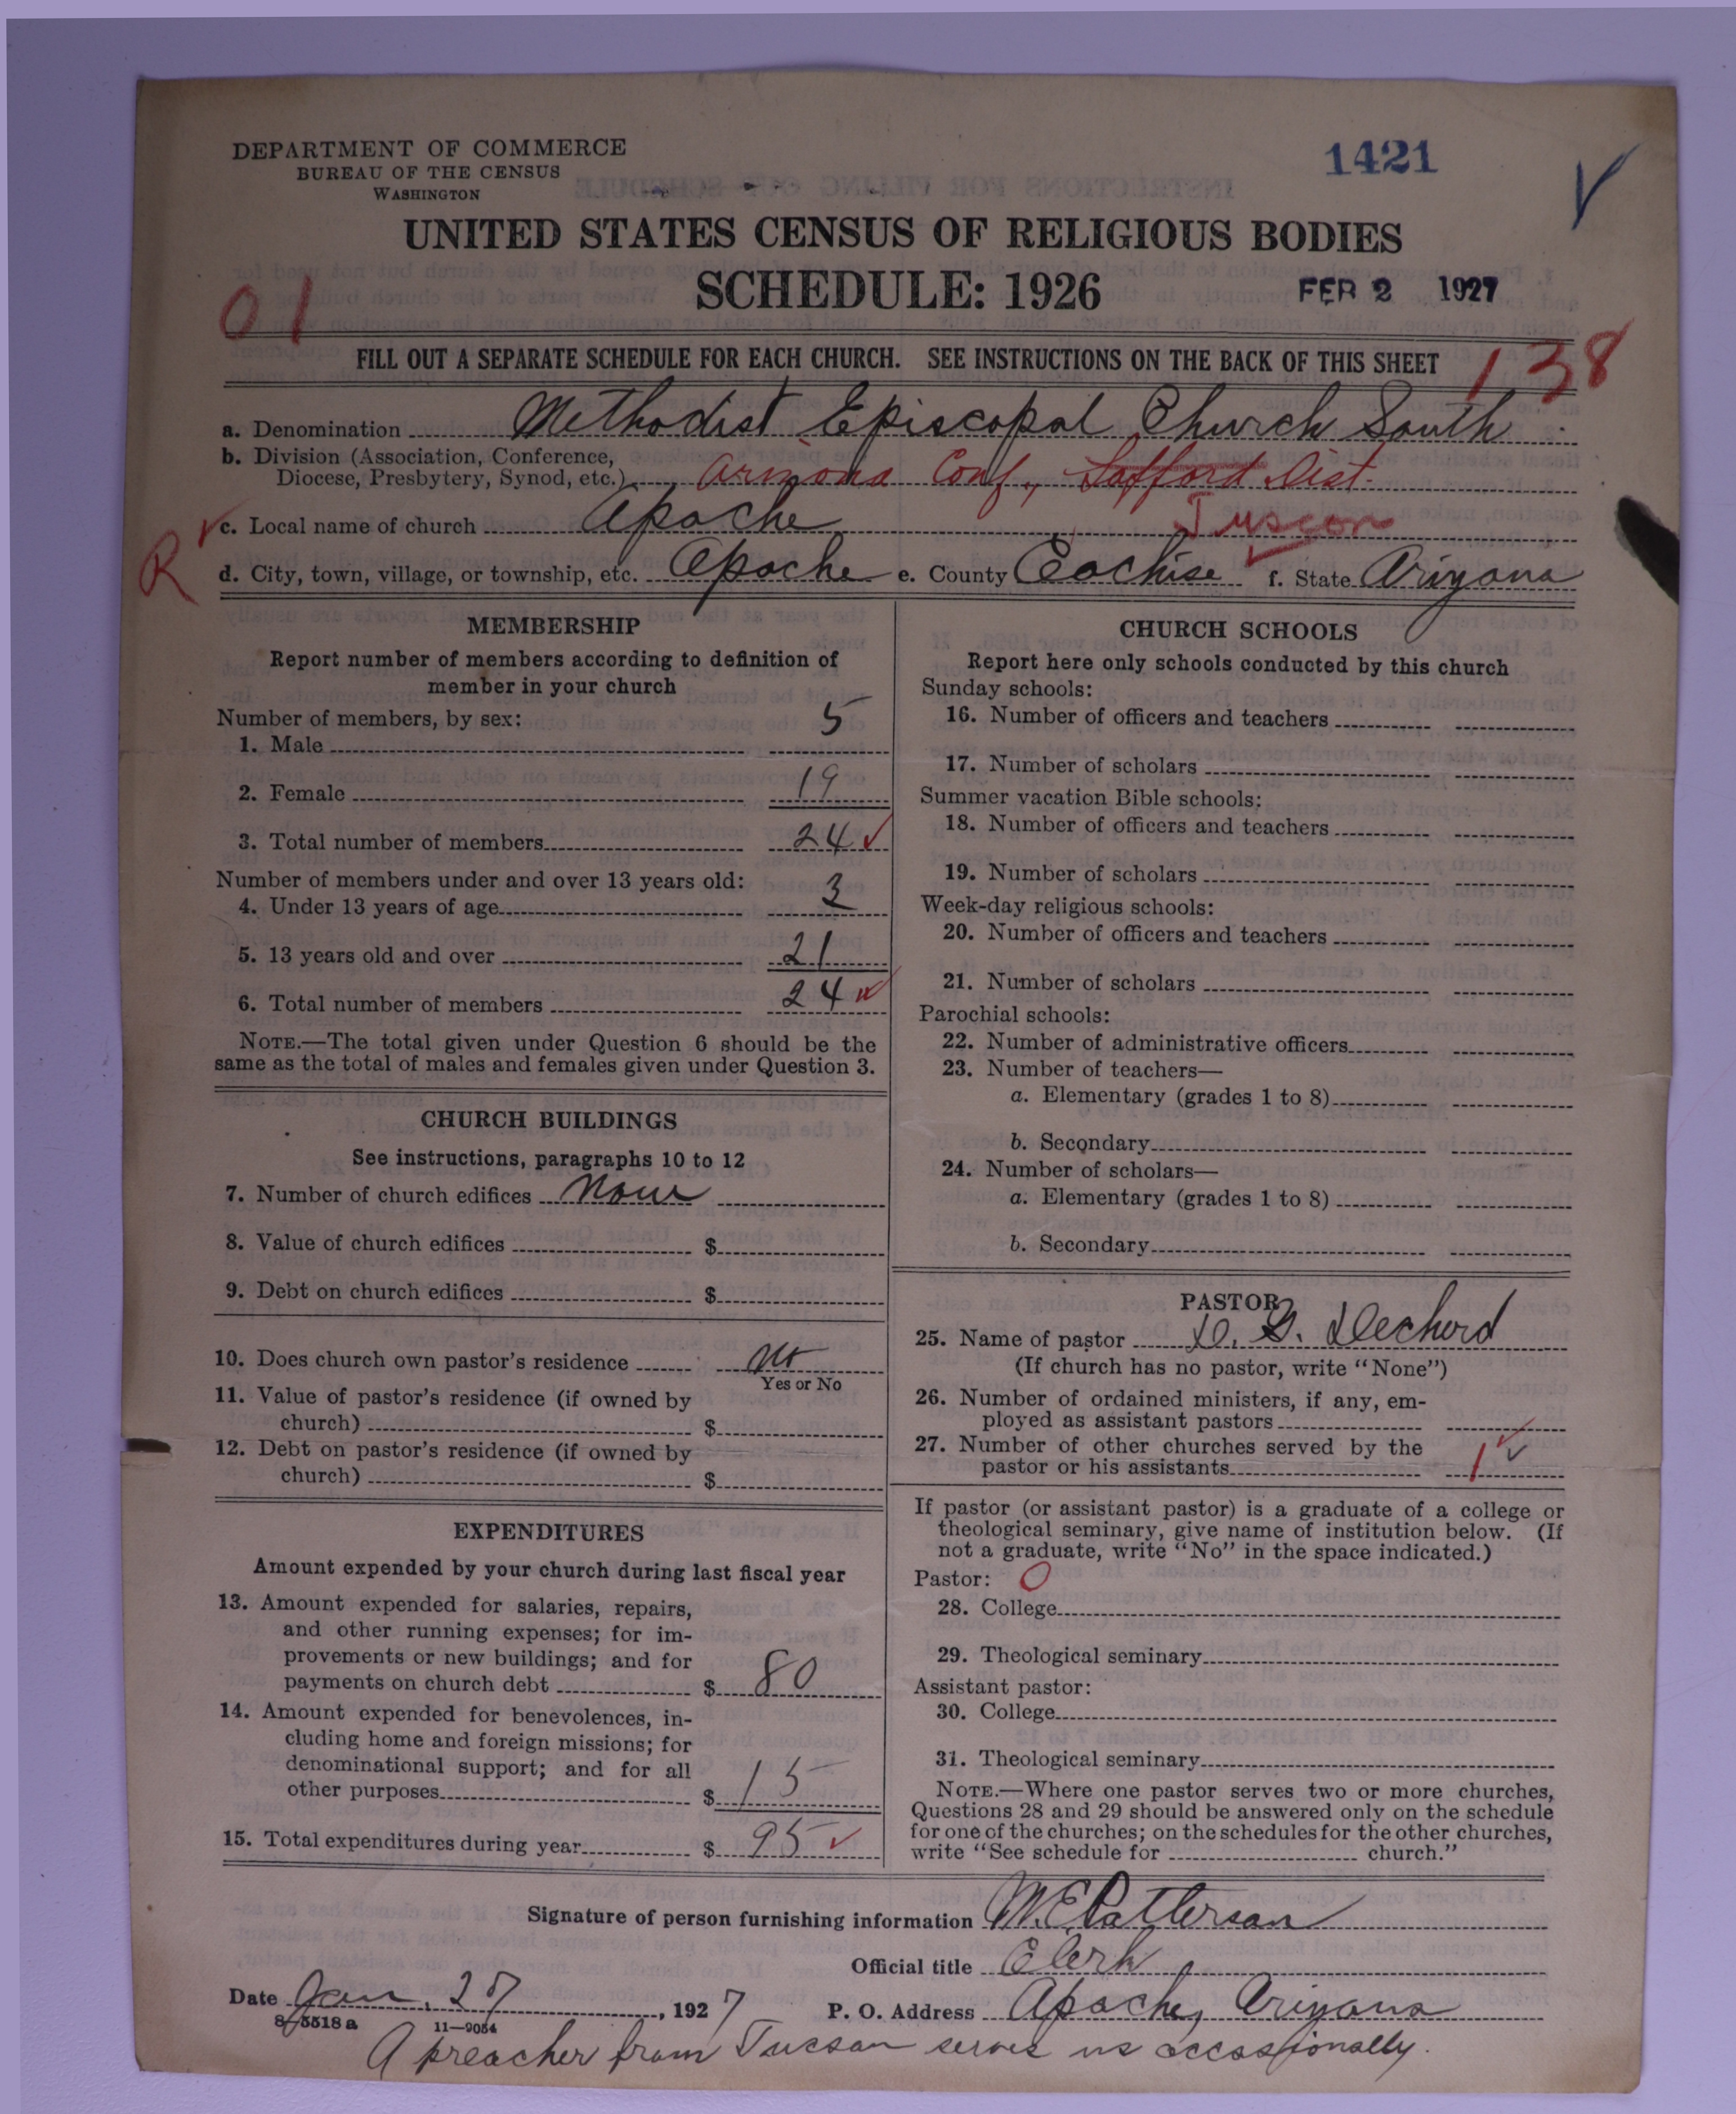 DEPARTMENT OF COMMERCE
BUREAU OF THE CENSUS
WASHINGTON
1421
UNITED STATES CENSUS OF RELIGIOUS BODIES
SCHEDULE: 1926
FEB 2 1927
01
FILL OUT A SEPARATE SCHEDULE FOR EACH CHURCH. SEE INSTRUCTIONS ON THE BACK OF THIS SHEET
138
a. Denomination Methodist Episcopal Church South
b. Division (Association, Conference,
Diocese, Presbytery, Synod, etc.) Arizona Conf., Safford Dist.
c. Local name of church Apache Tuscon
R
d. City, town, village, or township, etc. Apache e. County Cochise f. State Arizona
MEMBERSHIP
Report number of members according to definition of
member in your church
Number of members, by sex:
1. Male 5
2. Female 19
3. Total number of members 24
Number of members under and over 13 years old:
4. Under 13 years of age 3
5. 13 years old and over 21
6. Total number of members 24
NOTE.—The total given under Question 6 should be the
same as the total of males and females given under Question 3.
CHURCH BUILDINGS
See instructions, paragraphs 10 to 12
7. Number of church edifices None
8. Value of church edifices $
9. Debt on church edifices $
10. Does church own pastor's residence No
Yes or No
11. Value of pastor's residence (if owned by
church) $
12. Debt on pastor's residence (if owned by
church) $
EXPENDITURES
Amount expended by your church during last fiscal year
13. Amount expended for salaries, repairs,
and other running expenses; for im-
provements or new buildings; and for
payments on church debt $ 80
14. Amount expended for benevolences, in-
cluding home and foreign missions; for
denominational support; and for all
other purposes $ 15
15. Total expenditures during year $ 95
CHURCH SCHOOLS
Report here only schools conducted by this church
Sunday schools:
16. Number of officers and teachers
17. Number of scholars
Summer vacation Bible schools:
18. Number of officers and teachers
19. Number of scholars
Week-day religious schools:
20. Number of officers and teachers
21. Number of scholars
Parochial schools:
22. Number of administrative officers
23. Number of teachers—
a. Elementary (grades 1 to 8)
b. Secondary
24. Number of scholars—
a. Elementary (grades 1 to 8)
b. Secondary
PASTOR
25. Name of pastor D. G. Decherd
(If church has no pastor, write "None")
26. Number of ordained ministers, if any, em-
ployed as assistant pastors
27. Number of other churches served by the
pastor or his assistants 1
If pastor (or assistant pastor) is a graduate of a college or
theological seminary, give name of institution below. (If
not a graduate, write "No" in the space indicated.)
Pastor: O
28. College
29. Theological seminary
Assistant pastor:
30. College
31. Theological seminary
NOTE.—Where one pastor serves two or more churches,
Questions 28 and 29 should be answered only on the schedule
for one of the churches; on the schedules for the other churches,
write "See schedule for church."
Signature of person furnishing information M.E. Patterson
Official title Clerk
Date Jan. 27, 1927 P. O. Address Apache, Arizona
8-5518 a 11-9054
A preacher from Tucson serves us occassionally.